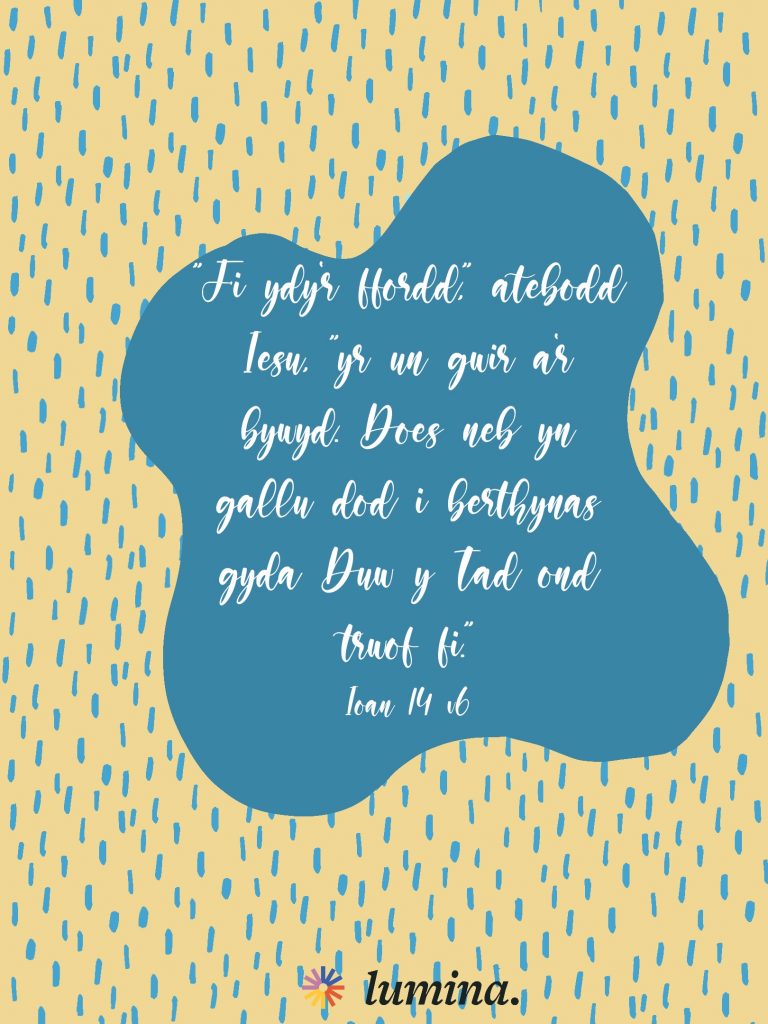 "Fi ydy'r ffordd," atebodd
Iesu, "yr un gwir a'r
bywyd. Does neb yn
gallu dod i berthynas
gyda Duw y Tad ond
trwof fi."
Ioan 14 v6
lumina.